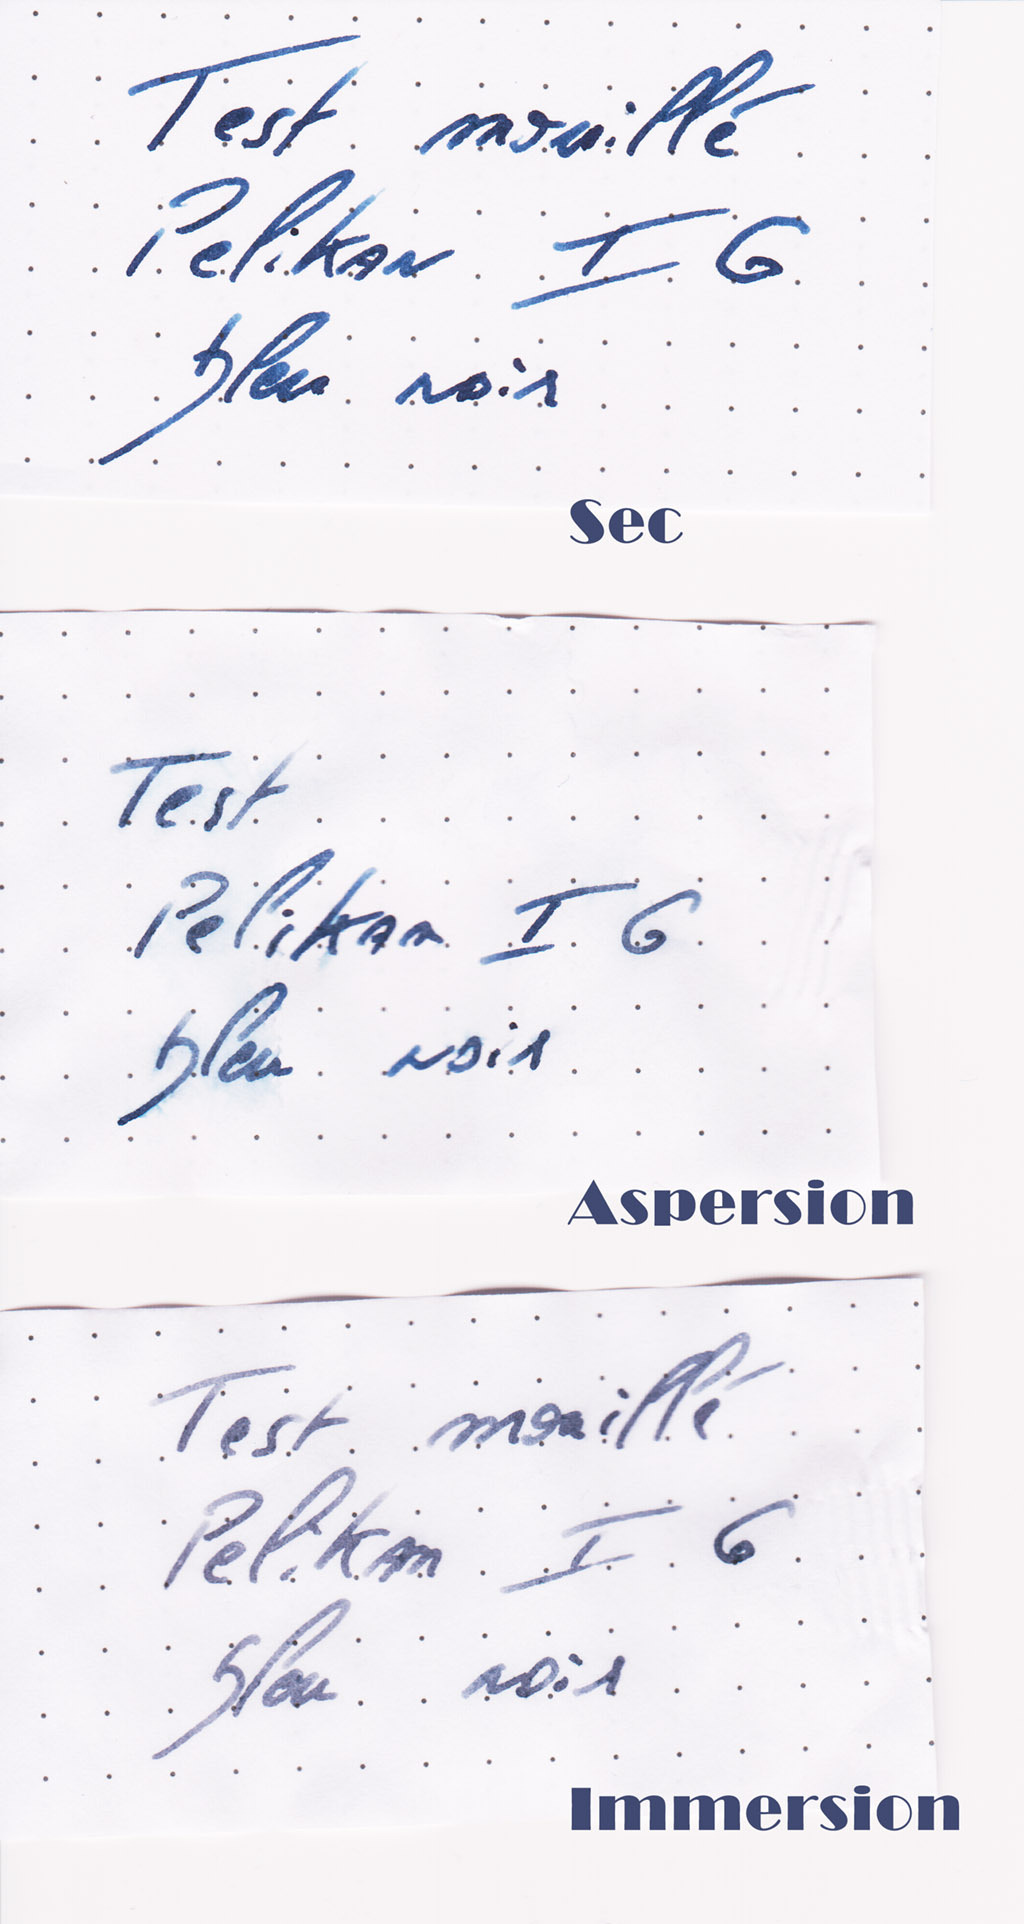 Test mouillé
Pelikan I G
bleu noir
Sec
Test
Pelikan I G
bleu noir
Aspersion
Test mouillé
Pelikan I G
bleu noir
Immersion